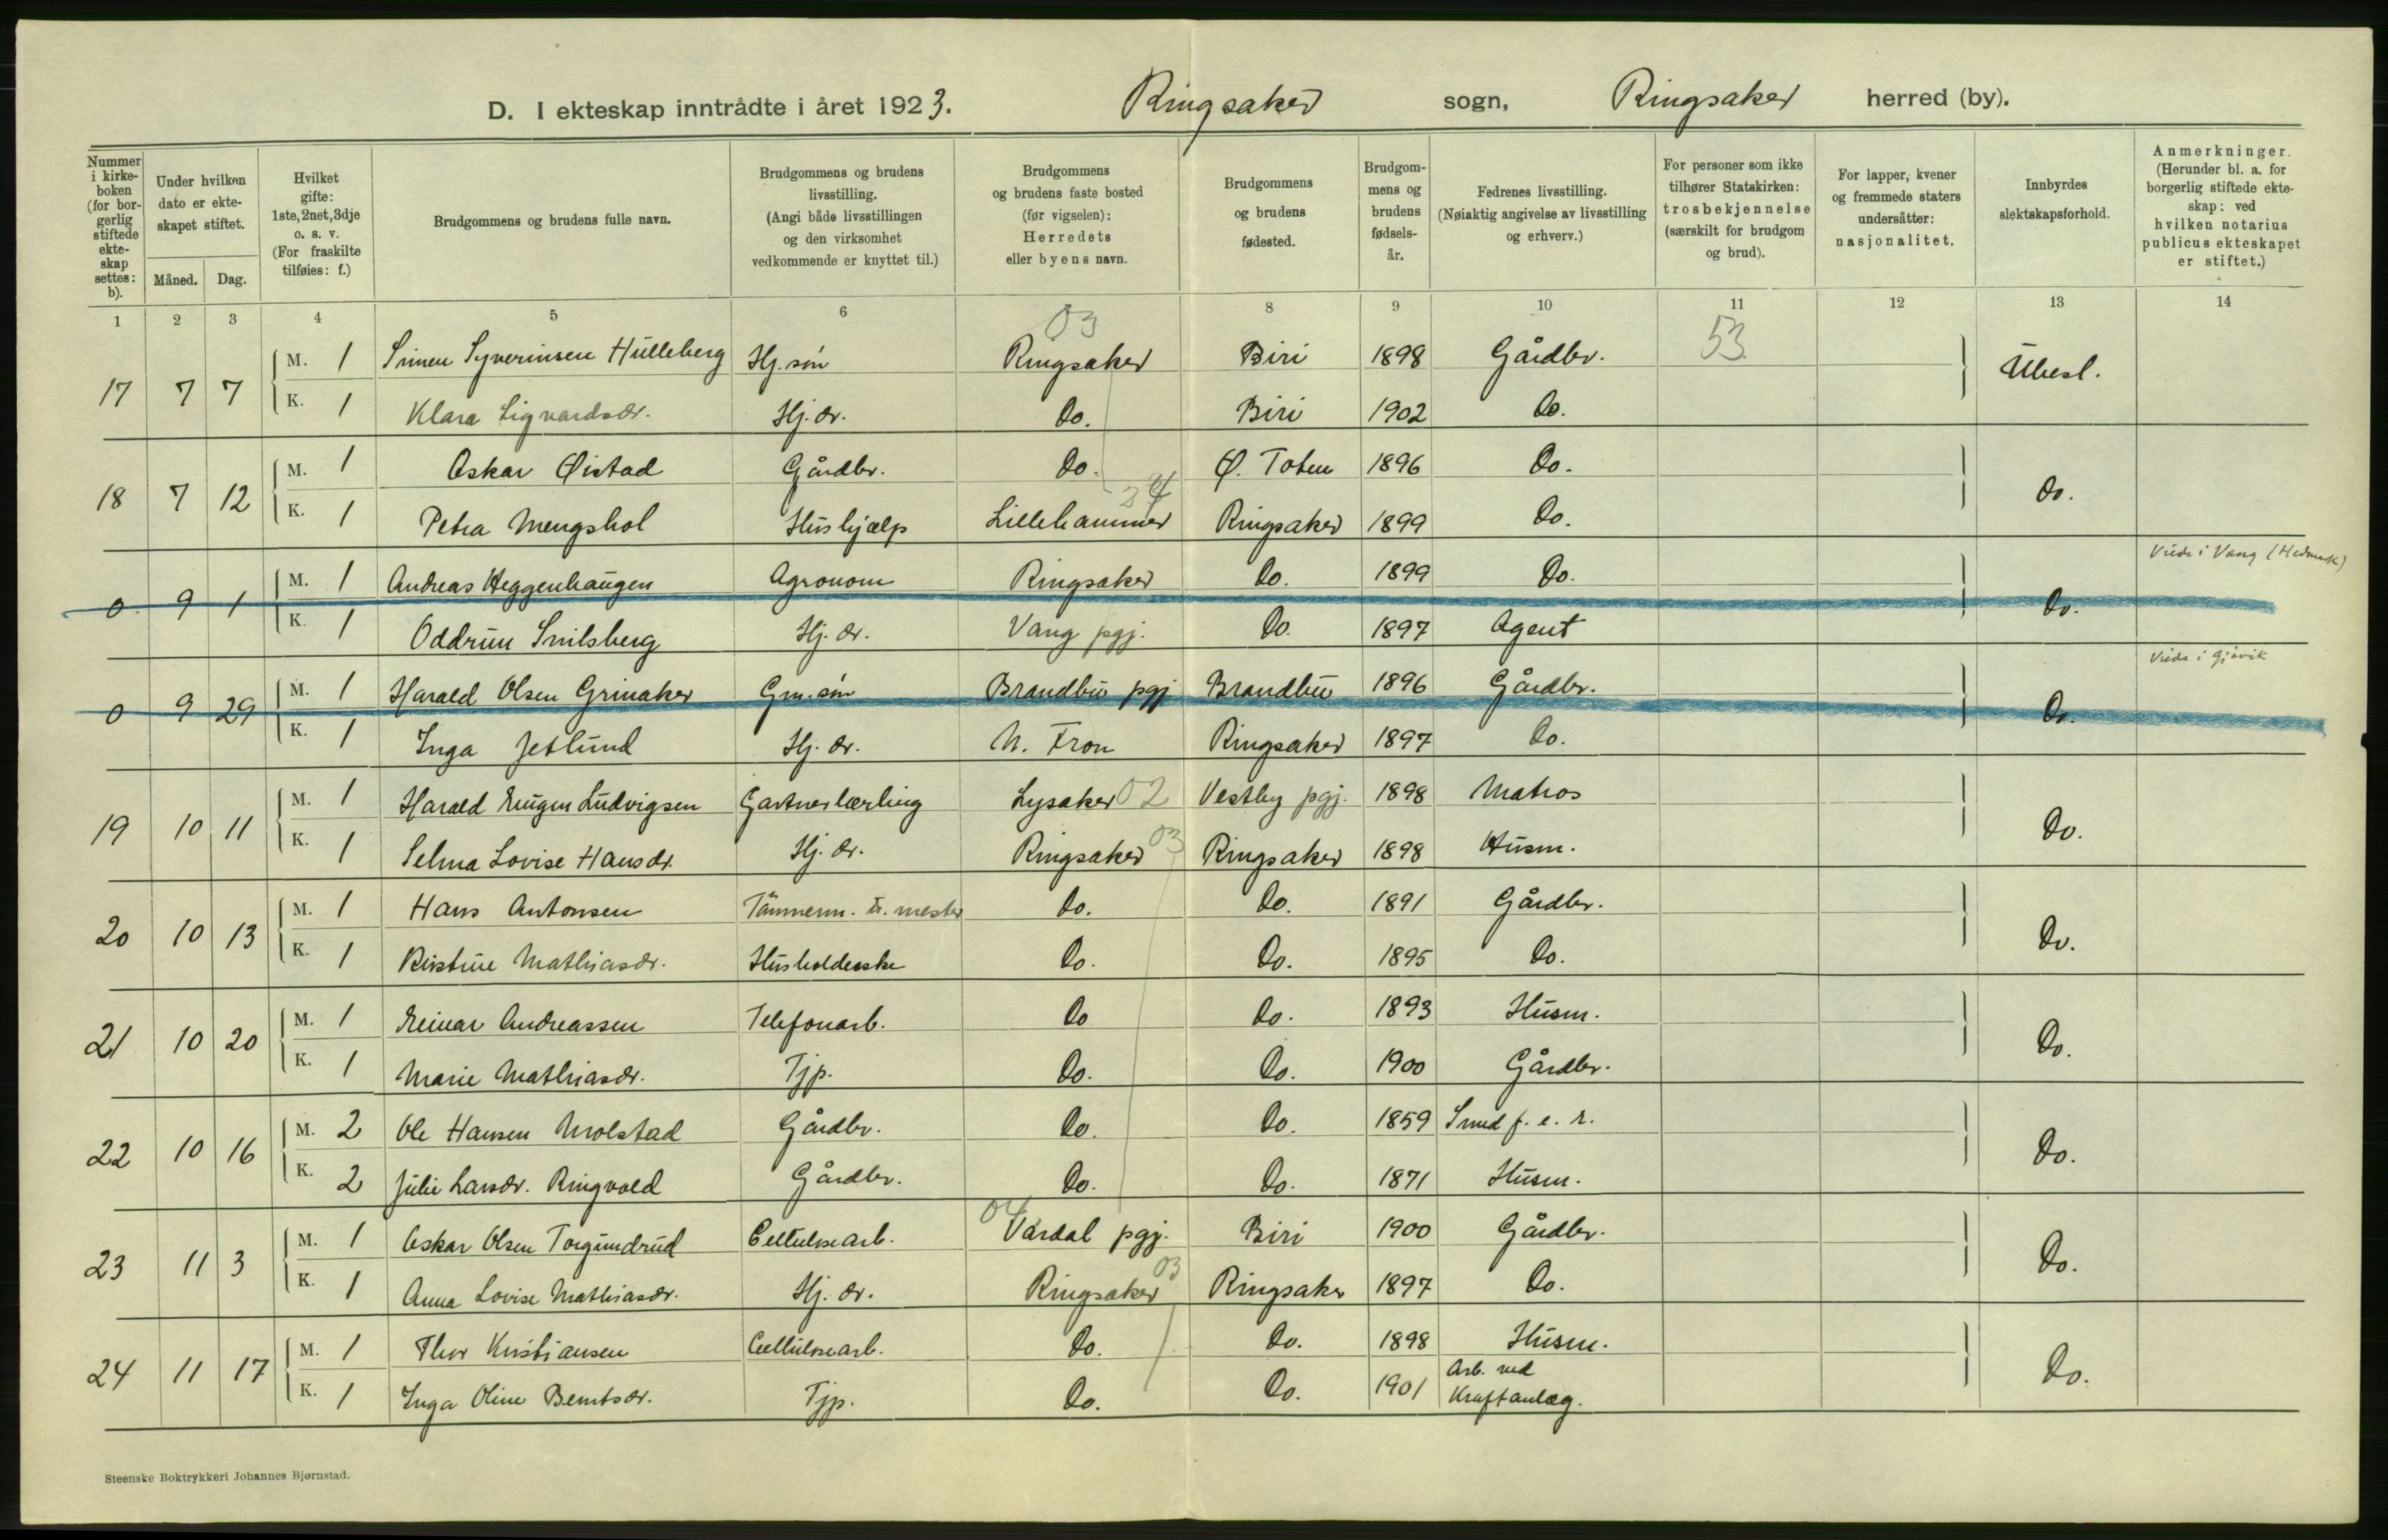 D. I ekteskap inntrådte i året 1923. Ringsaker sogn, Ringsaker herred (by).
Nummer i kirkeboken (for borgerlig stiftede ekteskap settes: b).
Under hvilken dato er ekteskapet stiftet.
Måned. Dag.
Hvilket gifte: 1ste, 2net, 3dje o. s. v. (For fraskilte tilføies: f.)
Brudgommens og brudens fulle navn.
Brudgommens og brudens livsstilling. (Angi både livsstillingen og den virksomhet vedkommende er knyttet til.)
Brudgommens og brudens faste bosted (før vigselen): Herredets eller byens navn.
Brudgommens og brudens fødested.
Brudgommens og brudens fødselsår.
Fedrenes livsstilling. (Nøiaktig angivelse av livsstilling og erhverv.)
For personer som ikke tilhører Statskirken: trosbekjennelse (særskilt for brudgom og brud).
For lapper, kvener og fremmede staters undersåtter: nasjonalitet.
Innbyrdes slektskapsforhold.
Anmerkninger. (Herunder bl. a. for borgerlig stiftede ekteskap: ved hvilken notarius publicus ekteskapet er stiftet.)
1 2 3 4 5 6 8 9 10 11 12 13 14
03 53
17 7 7 M. 1 Simen Syverinsen Hulleberg Hj. søn Ringsaker Biri 1898 Gårdbr. Ubesl.
K. 1 Klara Sigvardsdr. Hj. dr. Do. Biri 1902 Do.
18 7 12 M. 1 Oskar Øistad Gårdbr. Do. Ø. Toten 1896 Do. Do.
K. 1 Petra Mengshol Hushjælp Lillehammer Ringsaker 1899 Do.
0 9 1 M. 1 Andreas Heggenhaugen Agronom Ringsaker Do. 1899 Do. Do. Viede i Vang (Hedmark)
K. 1 Oddrun Smilsberg Hj. dr. Vang pgj. Do. 1897 Agent
0 9 29 M. 1 Harald Olsen Grinaker Gm. søn Brandbu pgj Brandbu 1896 Gårdbr. Do. Viede i Gjøvik
K. 1 Inga Jetlund Hj. dr. N. Fron Ringsaker 1897 Do.
19 10 11 M. 1 Harald Eugen Ludvigsen Gartnerlærling Lysaker 02 Vestby pgj. 1898 Matros Do.
K. 1 Selma Lovise Hansdr. Hj. dr. Ringsaker 03 Ringsaker 1898 Husm.
20 10 13 M. 1 Hans Antonsen Tømmerm. mester Do. Do. 1891 Gårdbr. Do.
K. 1 Kristine Mathiasdr. Husholderske Do. Do. 1895 Do.
21 10 20 M. 1 Reinar Andreassen Telefonarb. Do Do. 1893 Husm. Do.
K. 1 Marie Mathiasdr. Tjp. Do. Do. 1900 Gårdbr.
22 10 16 M. 2 Ole Hansen Molstad Gårdbr. Do. Do. 1859 Smed f. e. r. Do.
K. 2 Julie Larsdr. Ringvold Gårdbr. Do. Do. 1871 Husm.
23 11 3 M. 1 Oskar Olsen Torgundrud Cellulosearb. 04 Vardal pgj. Biri 1900 Gårdbr. Do.
K. 1 Anna Lovise Mathiasdr. Hj. dr. Ringsaker 03 Ringsaker 1897 Do.
24 11 17 M. 1 Thor Kristiansen Cellulosearb. Do. Do. 1898 Husm. Do.
K. 1 Inga Oline Berntsdr. Tjp. Do. Do. 1901 Arb. ved Kraftanlæg.
Steenske Boktrykkeri Johannes Bjørnstad.